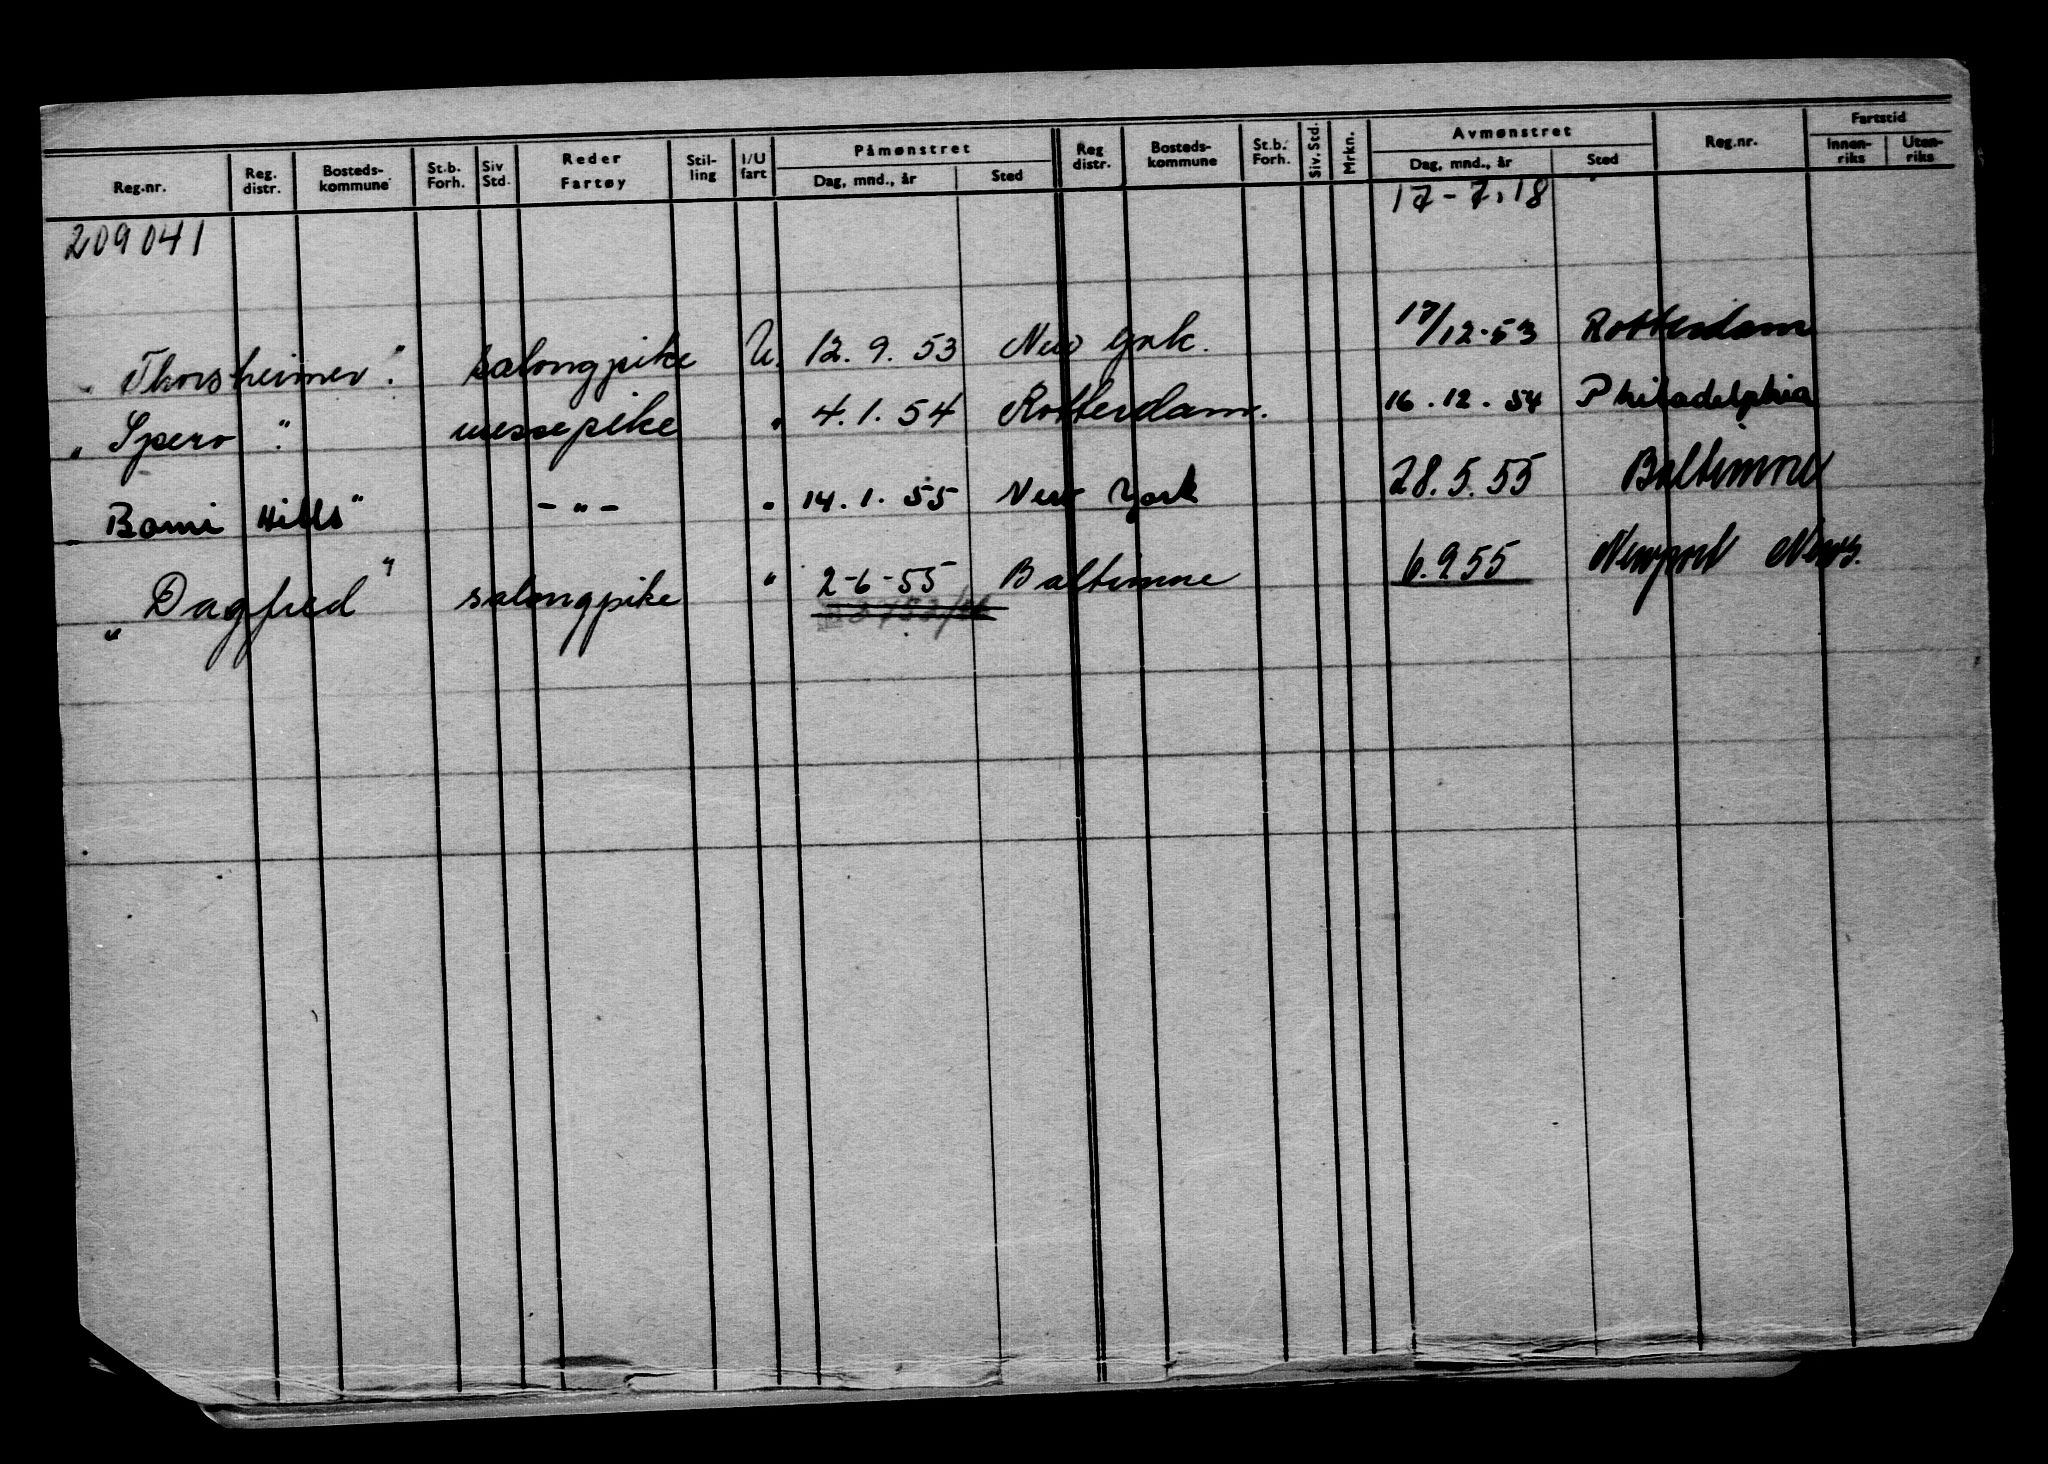 Reg.nr. Reg. distr. Bosteds-kommune St.b. Forh. Siv Std. Reder Fartøy Stil-ling I/U fart Påmønstret Dag, mnd., år Sted Reg distr. Bosteds-kommune St.b. Forh. Siv. Std. Mrkn. Avmønstret Dag, mnd., år Sted Reg.nr. Fartstid Innen-riks Uten-riks
209041 17-7.18
" Thorsheimer". salongpike U. 12.9.53 New York. 17/12-53 Rotterdam
" Spero ". messepike " 4.1.54 Rotterdam. 16.12.54 Philadelphia
" Bomi Hills" -"- " 14.1.55 New York 28.5.55 Baltimore
" Dagfred" salongpike " 2-6-55 Baltimore 6.9.55 Newport News.